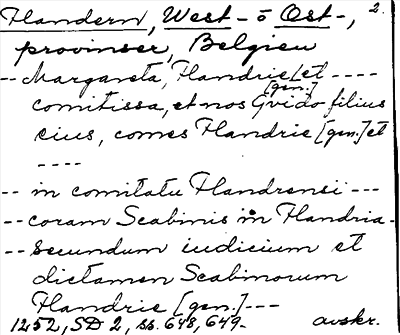 Flandern, West- o Ost-, 2.
provinser, Belgien
-- Margareta, Flandrie [et ----
[gen.]
comitissa, et nos Gvido filius
eius, comes Flandrie [gen.] et
----
-- in comitatu Flandrensi ---
-- coram Scabinis in Flandria -
-- Secundum iudicium et
dictamen Scabinorum
Flandrie [gen.] ---
1252, SD 2, ss. 648, 649. avskr.